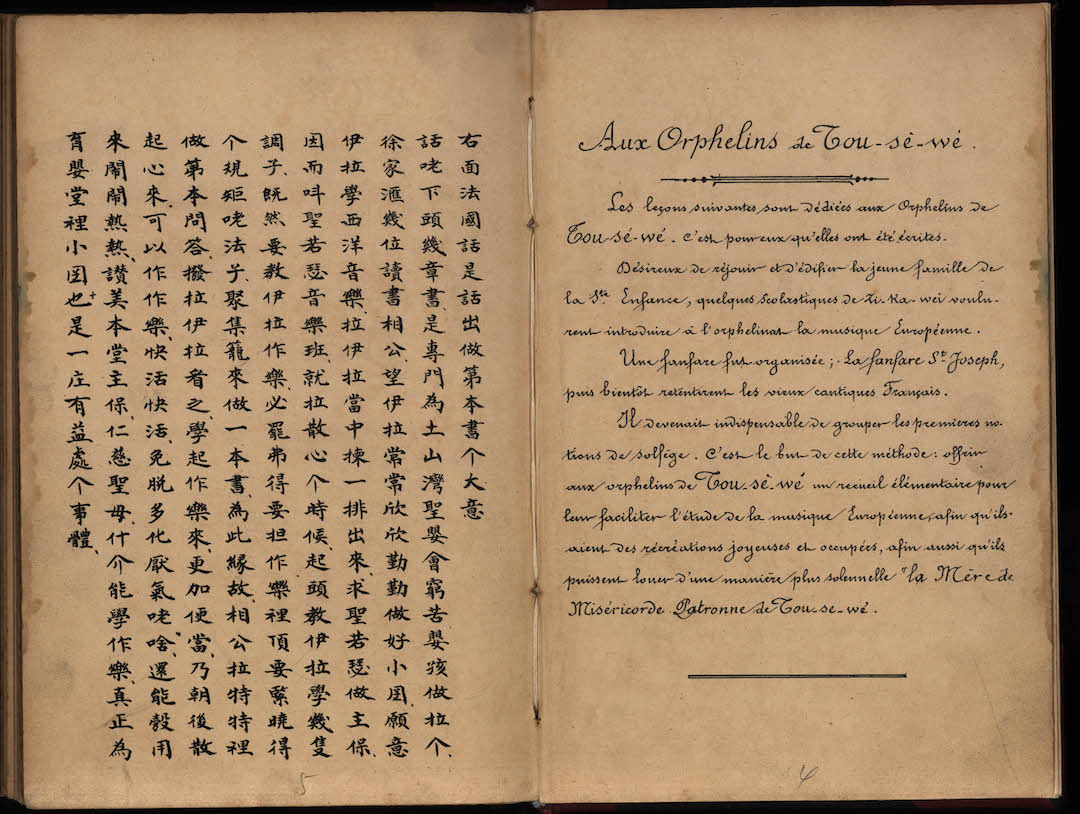 Aux Orphelins de Tou-sè-wé.
Les leçons suivantes sont dédiées aux Orphelins de
Tou-sé-wé. C'est pour eux qu'elles ont été écrites.
Désireux de réjouir et d'édifier la jeune famille de
la Ste Enfance, quelques scolastiques de Zi-ka-wei voulu-
rent introduire à l'orphelinat la musique Européenne.
Une fanfare fut organisée; La fanfare St Joseph,
puis bientôt retentirent les vieux cantiques Français.
Il devenait indispensable de grouper les premières no-
tions de solfège. C'est le but de cette méthode: offrir
aux orphelins de Tou-sè-wé un recueil élémentaire pour
leur faciliter l'étude de la musique Européenne, afin qu'ils
aient des récréations joyeuses et occupées, afin aussi qu'ils
puissent louer d'une manière plus solennelle la Mère de
Miséricorde Patronne de Tou-se-wé.
4
右面法國話是話出做第本書个大意
話咾下頭幾章書是專門為土山灣聖嬰會窮苦嬰孩做拉个、
徐家滙幾位讀書相公望伊拉常常欣欣勤勤做好小囝願意
伊拉學西洋音樂、拉伊拉當中揀一排出來、求聖若瑟做主保、
因而呌聖若瑟音樂班、就拉散心个時候、起頭教伊拉學幾隻
調子、旣然要教伊拉作樂、必罷弗得要担作樂裡頂要緊曉得
个規矩咾法子、聚集籠來做一本書、為此緣故、相公拉特特裡
做第本問答、撥拉伊拉看之、學起作樂來、更加便當、乃朝後散
起心來、可以作作樂、快活快活、免脫多化厭氣咾啥、還能彀用
來鬧鬧熱熱、讚美本堂主保、仁慈聖母、什介能學作樂、真正為
育嬰堂裡小囝也是一庄有益處个事體、
5